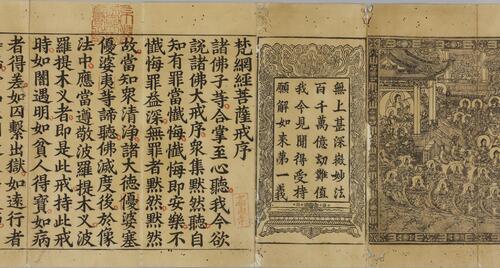 無上甚深微妙法
百千萬億劫難值
我今見聞得受持
願解如來第一義
梵網經菩薩戒序
諸佛子等合掌至心聽我今欲
說諸佛大戒序衆集默然聽自
知有罪當懺悔懺悔即安樂不
懺悔罪益深無罪者默然默然
故當知衆清淨諸大德優婆塞
優婆夷等諦聽佛滅度後於像
法中應當尊敬波羅提木叉波
羅提木叉者即是此戒持此戒
時如闇遇明如貧人得寶如病
者得差如囚繫出獄如遠行者